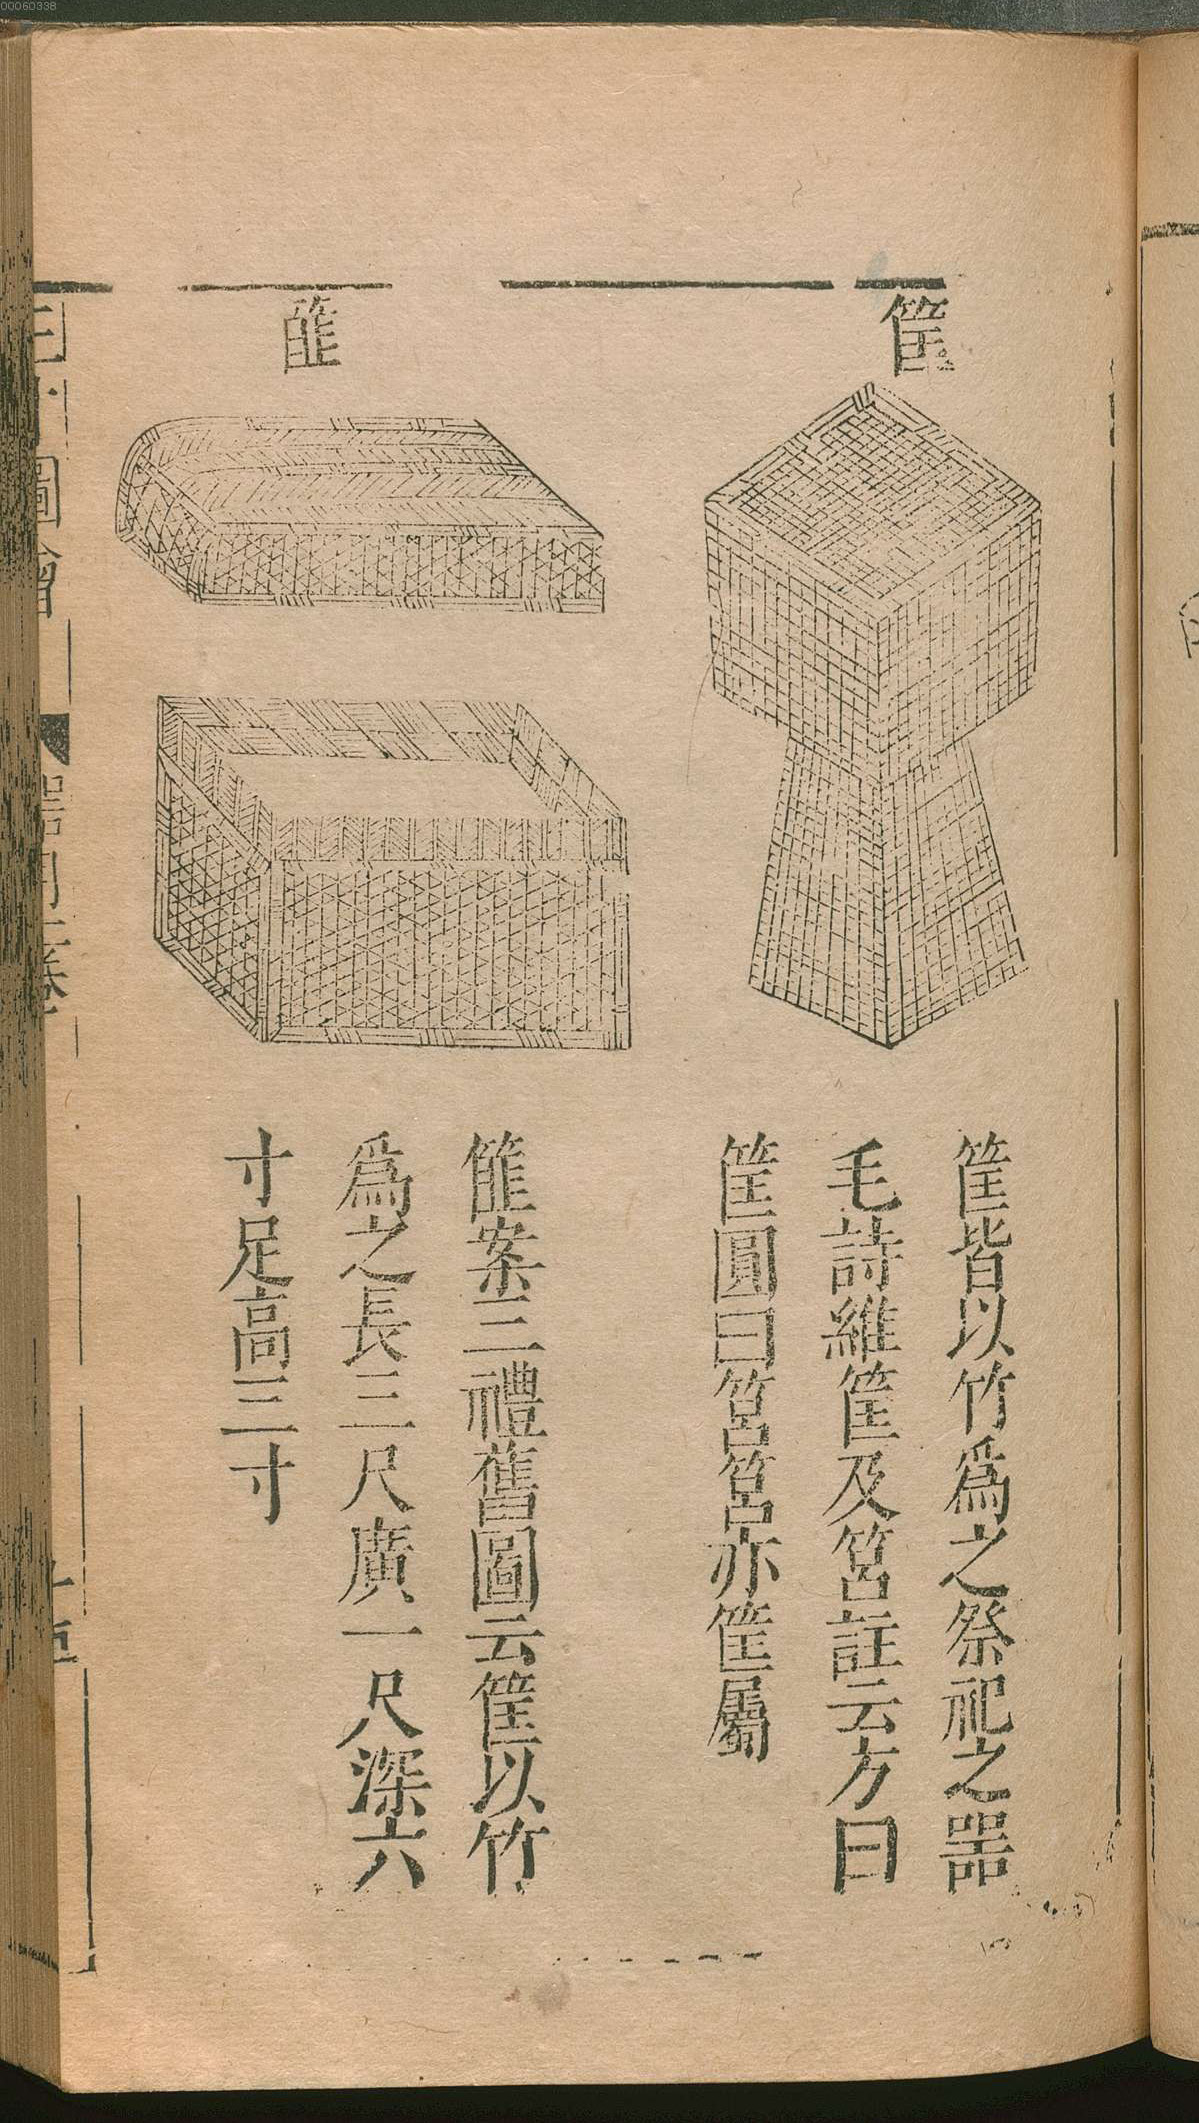 00060338
筐
筐皆以竹爲之祭祀之噐
毛詩維筐及筥註云方曰
筐圓曰筥筥亦筐屬
篚
篚案三禮舊圖云筐以竹
爲之長三尺廣一尺深六
寸足高三寸
圖會